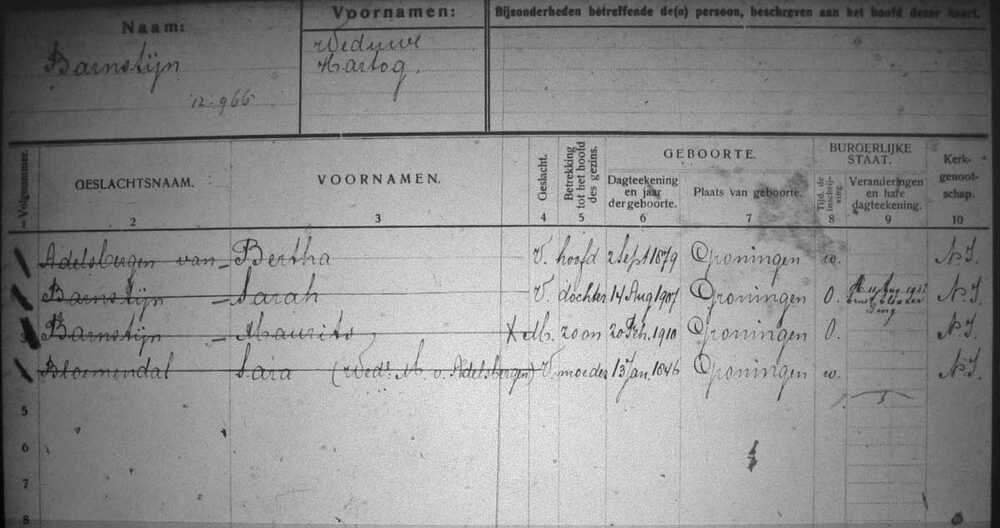 Naam:
Barnstijn
12.966
Voornamen:
Weduwe
Hartog
Bijzonderheden betreffende de(n) persoon, beschreven aan het hoofd dezer kaart.
Volgnummer.
GESLACHTSNAAM.
VOORNAMEN.
Geslacht.
Betrekking tot het hoofd des gezins.
GEBOORTE.
Dagteekening en jaar der geboorte.
Plaats van geboorte.
BURGERLIJKE STAAT.
Tijd. de inschrijving.
Veranderingen en hare dagteekening.
Kerkgenootschap.
1 2 3 4 5 6 7 8 9 10
Adelsbergen van Bertha V. hoofd 2 Sept 1879 Groningen w. N.I.
Barnstijn Sarah V. dochter 14 Aug 1907 Groningen O. N.I.
Barnstijn Maurits X M. zoon 20 Feb. 1910 Groningen O. N.I.
Bloemendal Sara (Wed. M v. Adelsbergen) V. moeder 13 Jan. 1846 Groningen w. N.I.
5
6
7
8